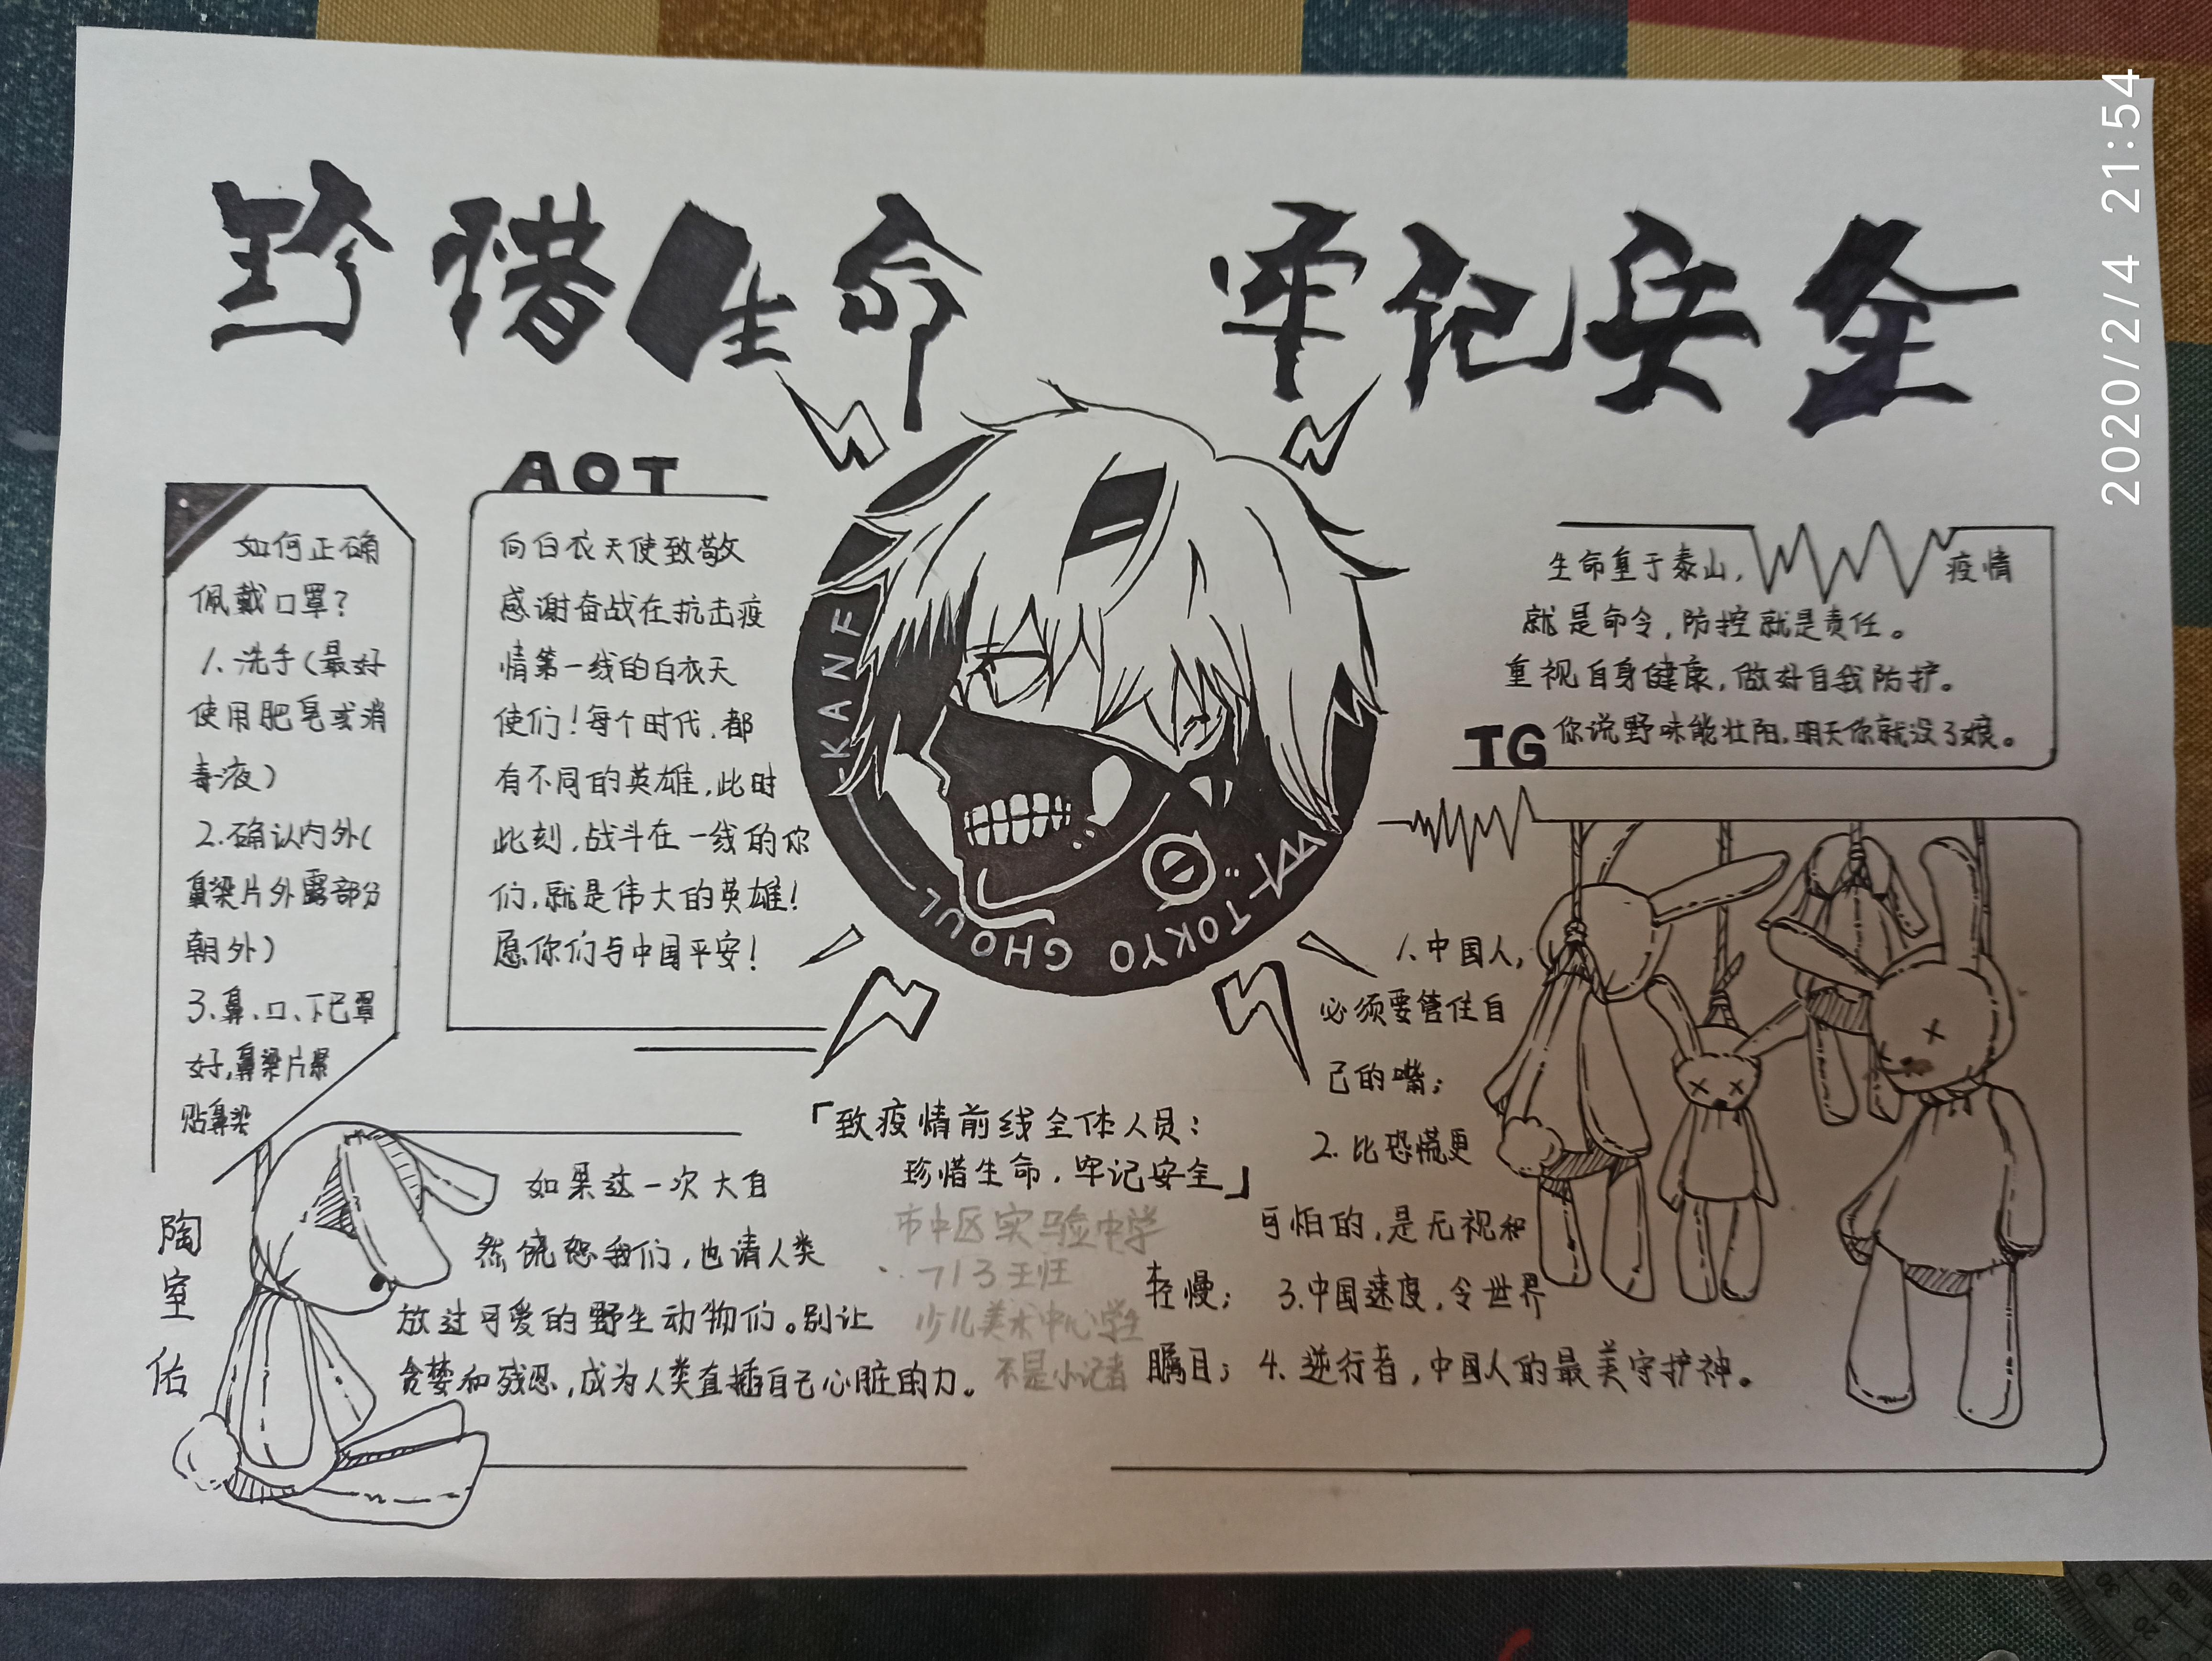 珍惜生命 牢记安全
2020/2/4 21:54
如何正确
佩戴口罩?
1.洗手(最好
使用肥皂或消
毒液)
2.确认内外(
鼻梁片外露部分
朝外)
3.鼻、口、下巴罩
好,鼻梁片紧
贴鼻梁
AOT
向白衣天使致敬
感谢奋战在抗击疫
情第一线的白衣天
使们!每个时代,都
有不同的英雄,此时
此刻,战斗在一线的你
们,就是伟大的英雄!
愿你们与中国平安!
KANF
TOKYO GHOUL
生命重于泰山, 疫情
就是命令,防控就是责任。
重视自身健康,做好自我防护。
TG 你说野味能壮阳,明天你就没了娘。
1.中国人,
必须要管住自
己的嘴;
2.比恐慌更
可怕的,是无视和
轻慢; 3.中国速度,令世界
瞩目; 4.逆行者,中国人的最美守护神。
「致疫情前线全体人员:
珍惜生命,牢记安全」
市中区实验中学
713王
少儿美术中心学生
不是小记者
如果这一次大自
然饶恕我们,也请人类
放过可爱的野生动物们。别让
贪婪和残忍,成为人类直插自己心脏的力。
陶室佑